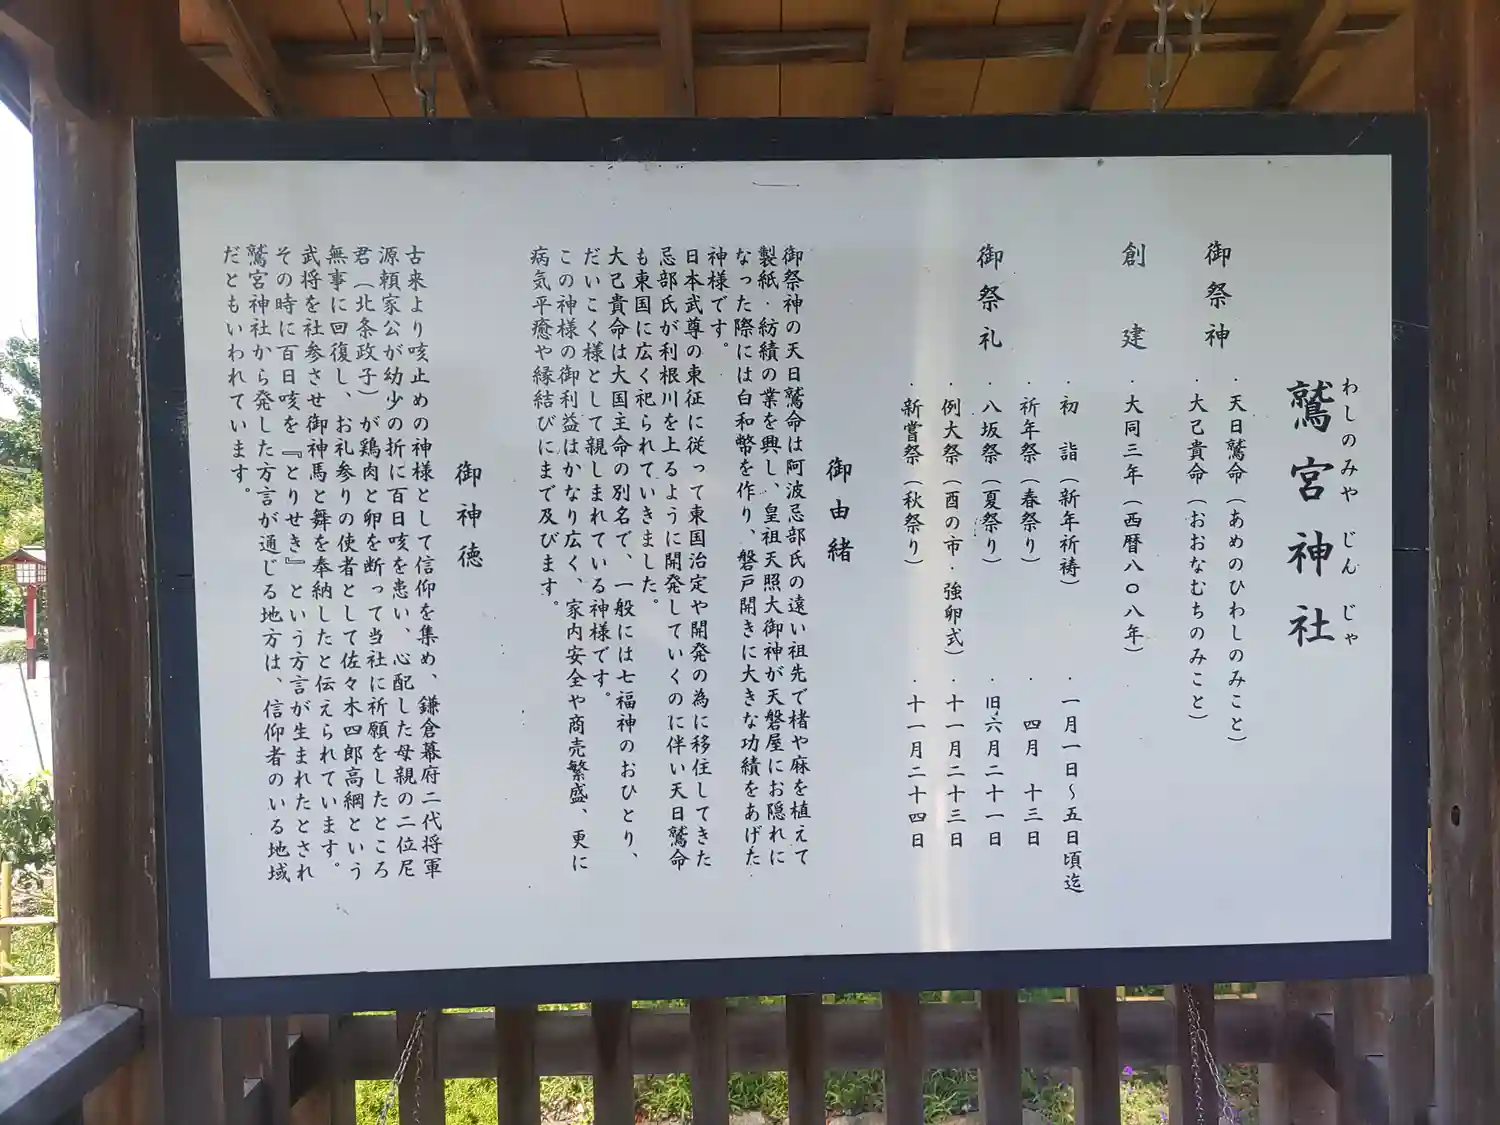 鷲宮神社
わしのみや じんじゃ
御祭神
・天日鷲命（あめのひわしのみこと）
・大己貴命（おおなむちのみこと）
創建
・大同三年（西暦八〇八年）
御祭礼
・初詣（新年祈祷）・一月一日～五日頃迄
・祈年祭（春祭り）・四月十三日
・八坂祭（夏祭り）・旧六月二十一日
・例大祭（酉の市・強卵式）・十一月二十三日
・新嘗祭（秋祭り）・十一月二十四日
御由緒
御祭神の天日鷲命は阿波忌部氏の遠い祖先で楮や麻を植えて
製紙・紡績の業を興し、皇祖天照大御神が天磐屋にお隠れに
なった際には白和幣を作り、磐戸開きに大きな功績をあげた
神様です。
日本武尊の東征に従って東国治定や開発の為に移住してきた
忌部氏が利根川を上るように開発していくのに伴い天日鷲命
も東国に広く祀られていきました。
大己貴命は大国主命の別名で、一般には七福神のおひとり、
だいこく様として親しまれている神様です。
この神様の御利益はかなり広く、家内安全や商売繁盛、更に
病気平癒や縁結びにまで及びます。
御神徳
古来より咳止めの神様として信仰を集め、鎌倉幕府二代将軍
源頼家公が幼少の折に百日咳を患い、心配した母親の二位尼
君（北条政子）が鶏肉と卵を断って当社に祈願をしたところ
無事に回復し、お礼参りの使者として佐々木四郎高綱という
武将を社参させ御神馬と舞を奉納したと伝えられています。
その時に百日咳を『とりせき』という方言が生まれたとされ
鷲宮神社から発した方言が通じる地方は、信仰者のいる地域
だともいわれています。